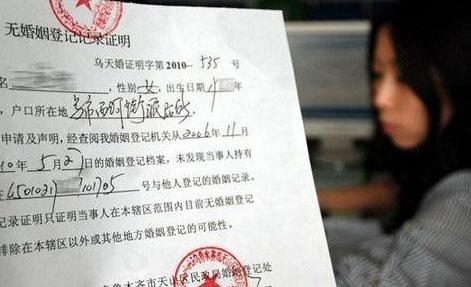 无婚姻登记记录证明
乌天婚证明字第2010-535号
名 ,性别女,出生日期
,户口所在地
申请及声明,经查阅我婚姻登记机关从2006年11月
10年5月27日的婚姻登记档案,未发现当事人持有
6501021 101705号与他人登记的婚姻记录。
记录证明只证明当事人在本辖区范围内目前无婚姻登
排除在本辖区以外或其他地方婚姻登记的可能性。
鲁木齐市天山区民政局婚姻登记处